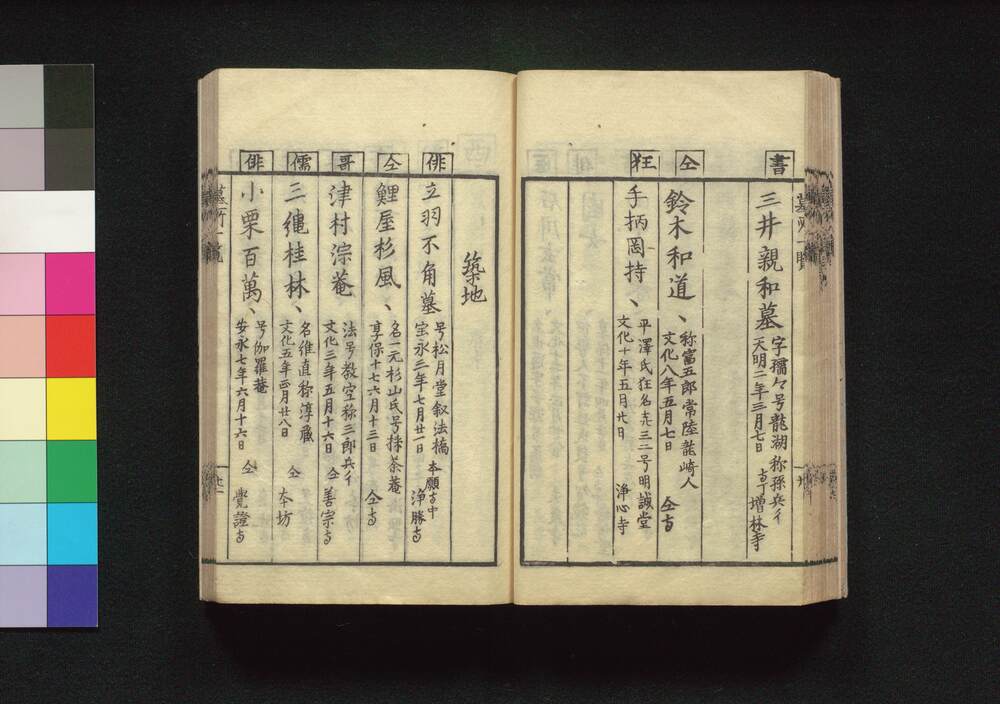 書
三井親和墓
字孺々号龍湖称孫兵ヱ
天明二年三月七日
増林寺
仝
鈴木和道〻
称富五郎常陸龍崎人
文化八年五月七日
仝寺
狂
手柄岡持〻
平澤氏狂名㐂三二号明誠堂
文化十年五月廿日
浄心寺
築地
俳
立羽不角墓
号松月堂叙法橋
宝永三年七月廿一日
本願寺中
浄勝寺
仝
鯉屋杉風〻
名一元杉山氏号採荼菴
享保十七六月十三日
仝寺
哥
津村淙菴
法号教空称三郎兵ヱ
文化三年五月十六日
仝 善宗寺
儒
三縄桂林〻
名維直称淳蔵
文化五年正月廿八日
仝 本坊
俳
小栗百萬〻
号伽羅菴
安永七年六月十六日
仝 覺證寺
墓所一覧